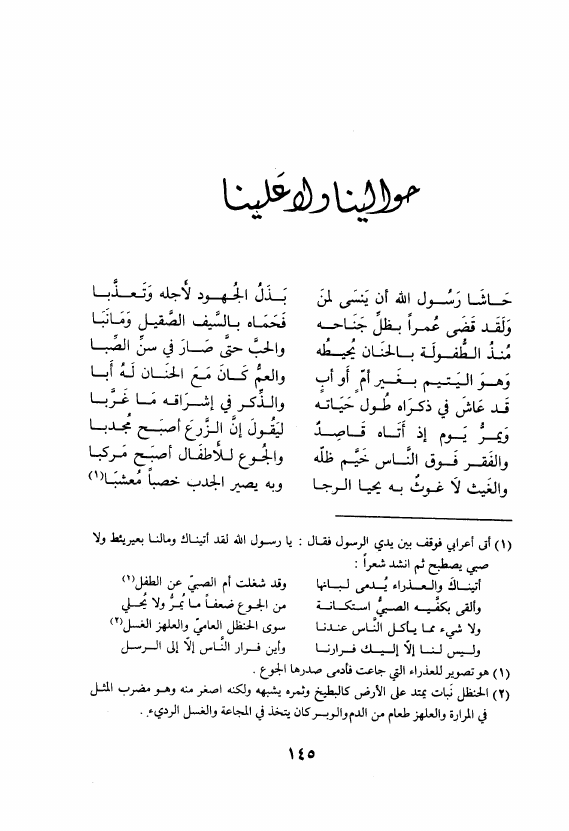 حوالينا ولا علينا
حَـاشَـا رَسُـول الله أن يَنسَى لمنَ    بَـذَلُ الجُـهـود لأجله وَتَـعـذَّبـا
وَلَقَـد قَضَى عُمـراً بـظلِّ جَناحـه    فَحَمَاه بـالسَّيف الصَّقيـل وَمَـانَبَا
مُنـذُ الطُّفـولَـة بـالحَنان يُحيـطُه    والحبَّ حتَّى صَـارَ في سنِّ الصِّبـا
وَهـوَ اليَتيـم بـغَـيـر أمٍّ أو أبٍ    والعمُّ كَـانَ مَـعَ الحَنَـان لَـهُ أبـا
قَـد عَاشَ في ذكـرَاه طُـول حَيَاتـه    والـذِّكر في إشرَاقـه مَـا غَـرَّبـا
وَيمـرُّ يَــوم إذ أتَـاه قَـاصِـدٌ    ليَقُولَ إنَّ الـزَّرعَ أصبَـحَ مُجدبـا
والفَقـر فَـوق النَّـاس خَيَّـم ظلّه    والجُوع لـلأطفَـال أصبَـحَ مَـركبا
والغَيث لاَ غَـوثُ بـه يحيـا الـرجا    وبه يصير الجدب خصباً مُعشبَـا(١)
(١) أتى أعرابي فوقف بين يدي الرسول فقال : يا رسول الله لقد أتيناك ومالنا بعيريئط ولا
صبي يصطبح ثم انشد شعراً :
أتينـاكَ والعـذراء يُـدمى لبـانها    وقد شغلت أم الصبيّ عن الطفل(١)
وألقى بكفَّيـه الصبيُّ استكـانـة    من الجوع ضعفـاً مـا يُمـرُّ ولا يُحـلي
ولا شيء مما يـأكـل النَّـاس عنـدنا    سوى الحنظل العاميّ والعلهز الغسل(٢)
وليـس لنـا إلّا إليـك فـرارنـا    وأين فـرار النَّـاس إلّا إلى الـرسل
(١) هو تصوير للعذراء التي جاعت فأدمى صدرها الجوع .
(٢) الحنظل نَبات يمتد على الأرض كالبطيخ وثمره يشبهه ولكنه اصغر منه وهـو مضرب المثل
في المرارة والعلهز طعام من الدم والوبـر كان يتخذ في المجاعة والغسل الرديء .
١٤٥